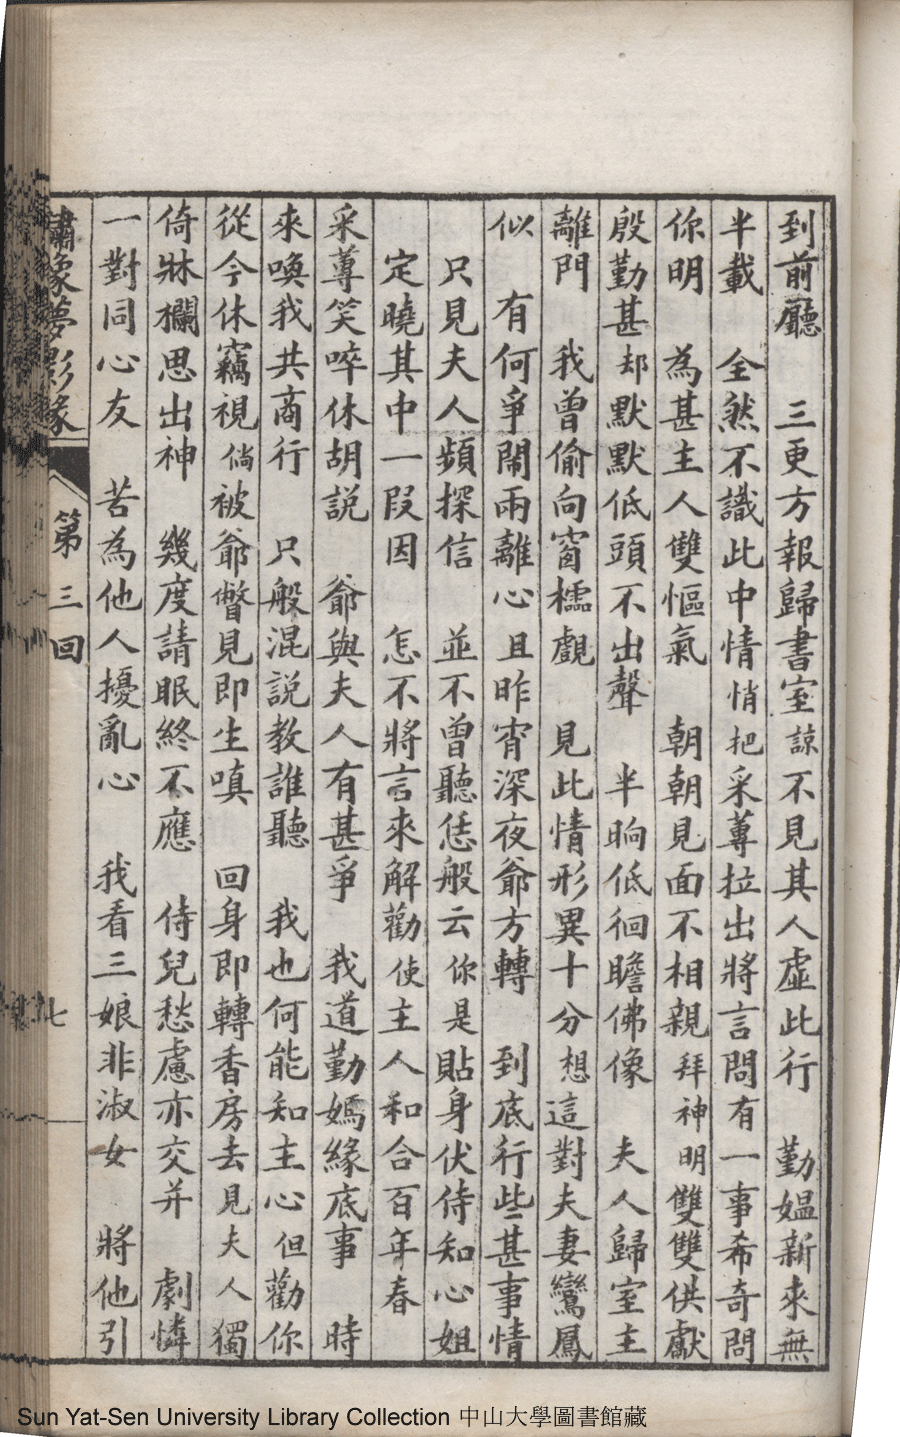 到前廳　三更方報歸書室諒不見其人虛此行　勤媪新來無
半載　全然不識此中情悄把采蓴拉出將言問有一事希奇問
你明　為甚主人雙慪氣　朝朝見面不相親拜神明雙雙供獻
殷勤甚却默默低頭不出聲　半晌低徊瞻佛像　夫人歸室主
離門　我曾偷向窗櫺覷　見此情形異十分想這對夫妻鸞鳳
似　有何爭鬧兩離心且昨宵深夜爺方轉　到底行些甚事情
只見夫人頻探信　並不曾聽恁般云你是貼身伏侍知心姐
定曉其中一段因　怎不將言來解勸使主人和合百年春
采蓴笑啐休胡説　爺與夫人有甚爭　我道勤媽緣底事　時
來喚我共商行　只般混説教誰聽　我也何能知主心但勸你
從今休竊視倘被爺瞥見即生嗔　回身即轉香房去見夫人獨
倚牀欄思出神　幾度請眠終不應　侍兒愁慮亦交并　劇憐
一對同心友　苦為他人擾亂心　我看三娘非淑女　將他引
夢影緣
第三回
七
Sun Yat-Sen University Library Collection 中山大學圖書館藏